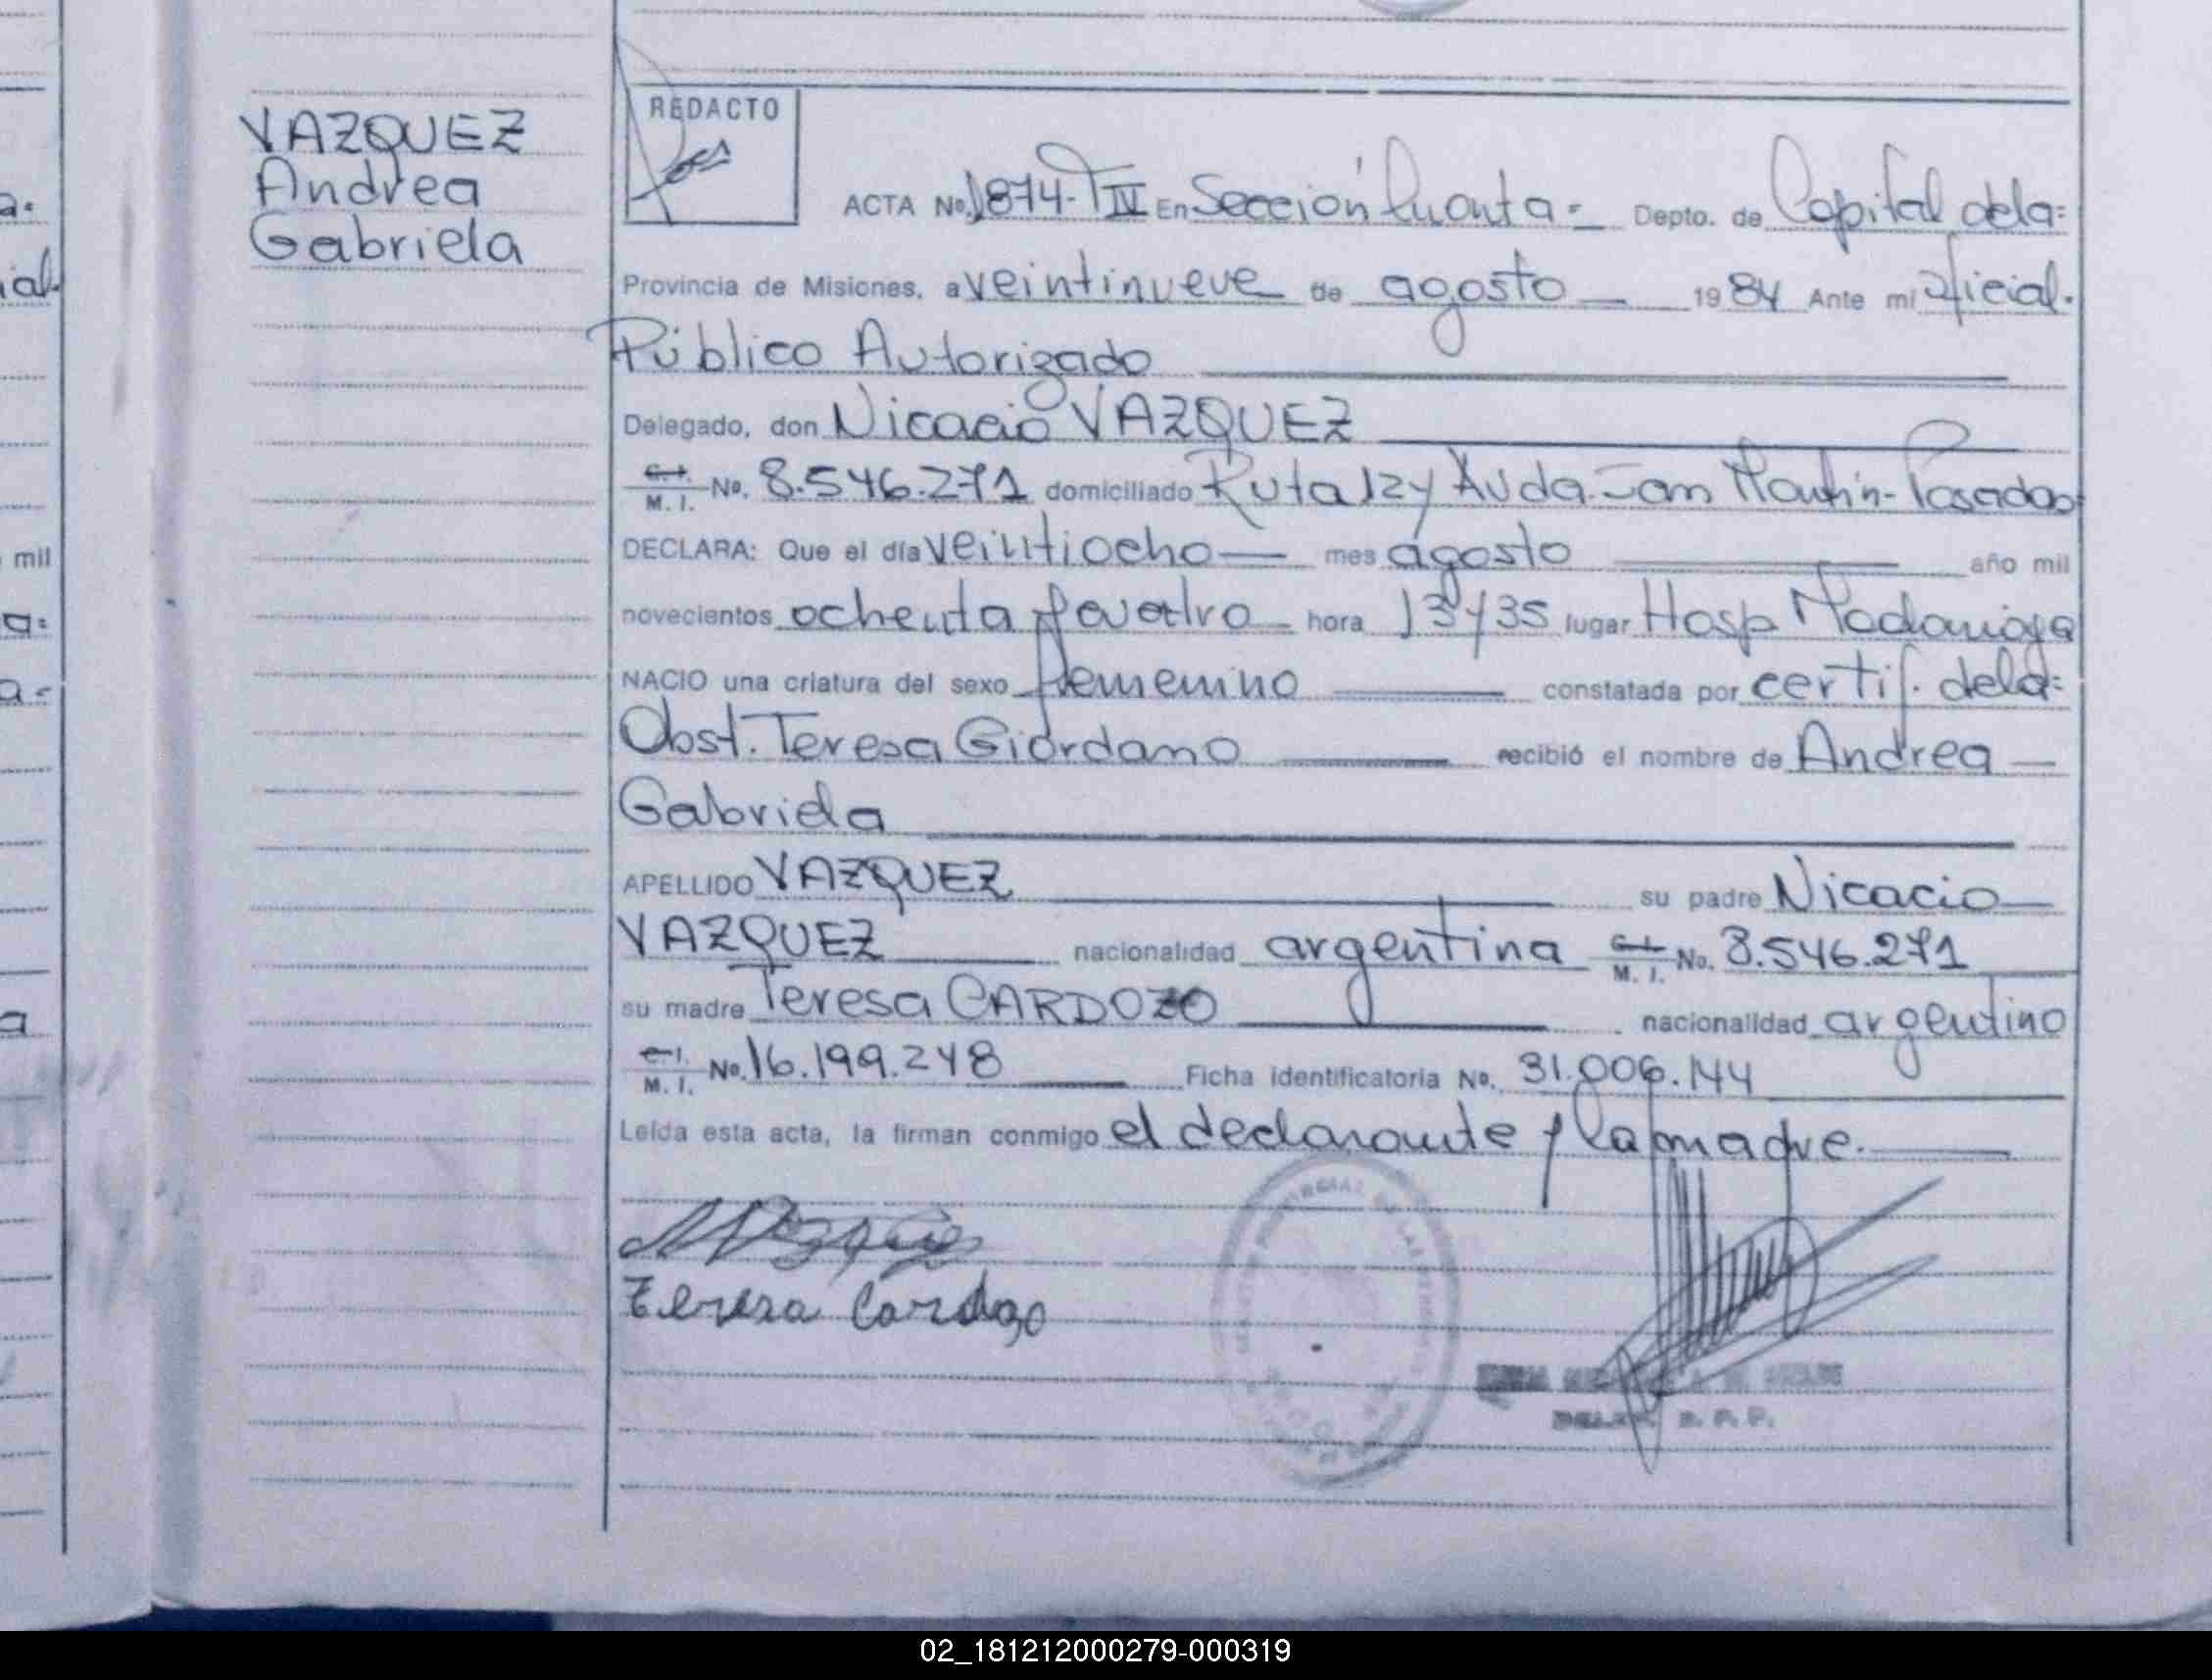 VAZQUEZ
Andrea
Gabriela
REDACTO
ACTA No. 1874-T IV En Sección Cuarta = Depto. de Capital dela=
Provincia de Misiones, a veintinueve de agosto 1984 Ante mi oficial.
Público Autorizado
Delegado, don Nicacio VAZQUEZ
C.I. M. I. No. 8.546.271 domiciliado Ruta 12 y Avda. San Martín - Posadas
DECLARA: Que el día veintiocho mes agosto año mil
novecientos ochenta y cuatro hora 13 y 35 lugar Hosp Madariaga
NACIO una criatura del sexo femenino constatada por certif. dela=
Obst. Teresa Giordano recibió el nombre de Andrea
Gabriela
APELLIDO VAZQUEZ su padre Nicacio
VAZQUEZ nacionalidad argentina C.I. M. I. No. 8.546.271
su madre Teresa CARDOZO nacionalidad argentino
C.I. M. I. No. 16.199.248 Ficha identificatoria No. 31.006.144
Leída esta acta, la firman conmigo el declarante y la madre.
Teresa Cardozo
a.
ial
mil
a=
a=
a
02_181212000279-000319